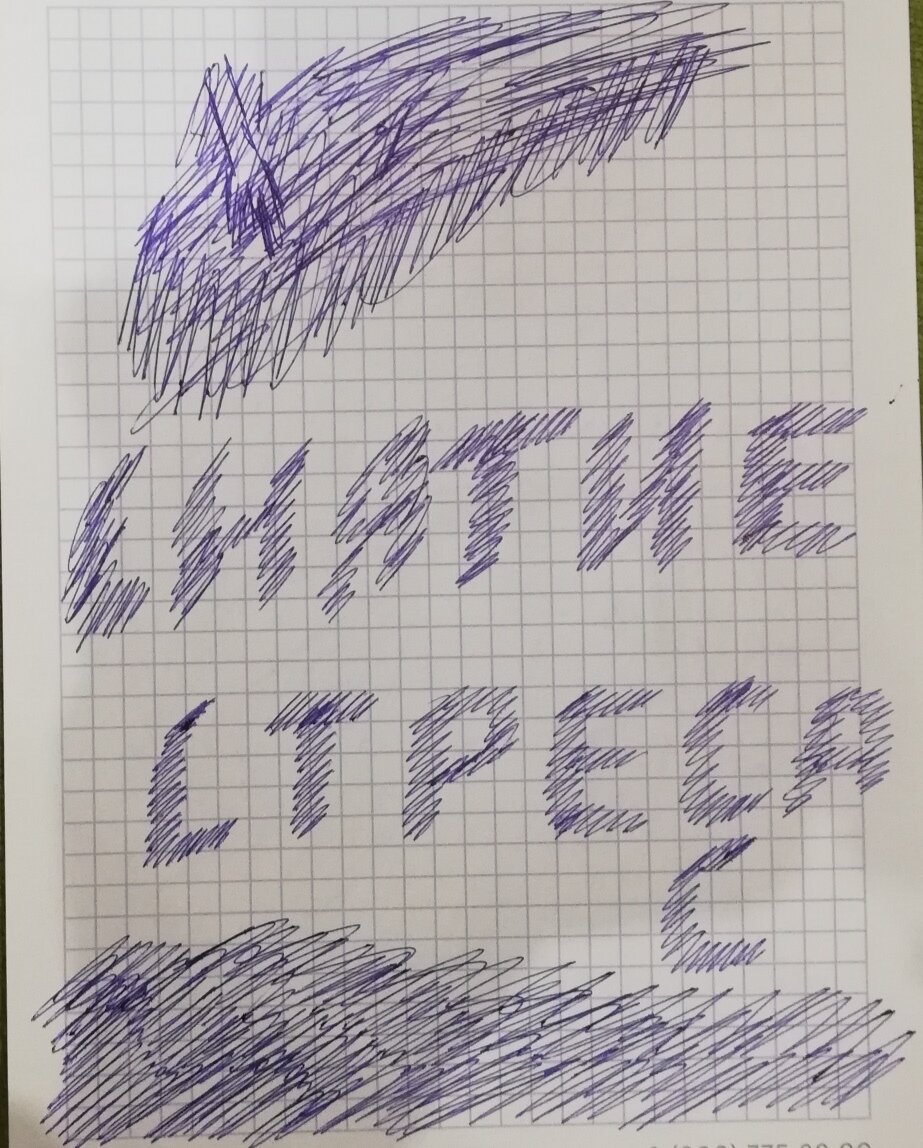 СНЯТИЕ
СТРЕСА
С